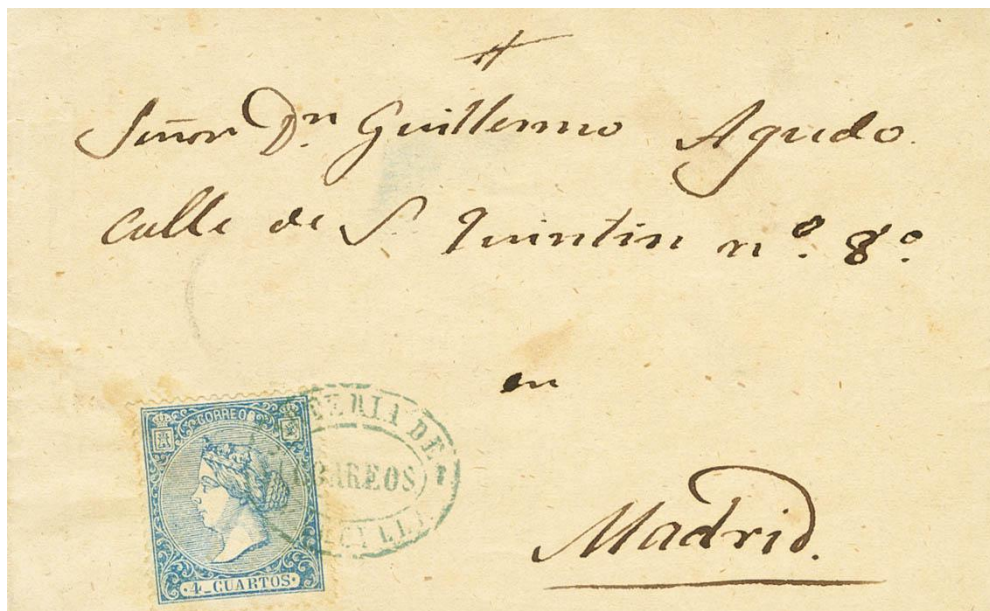 Señor Dn. Guillermo Agudo.
calle de S. Quintin nº. 8º.
en
Madrid.
CORREOS
4 CUARTOS
DE
CORREOS